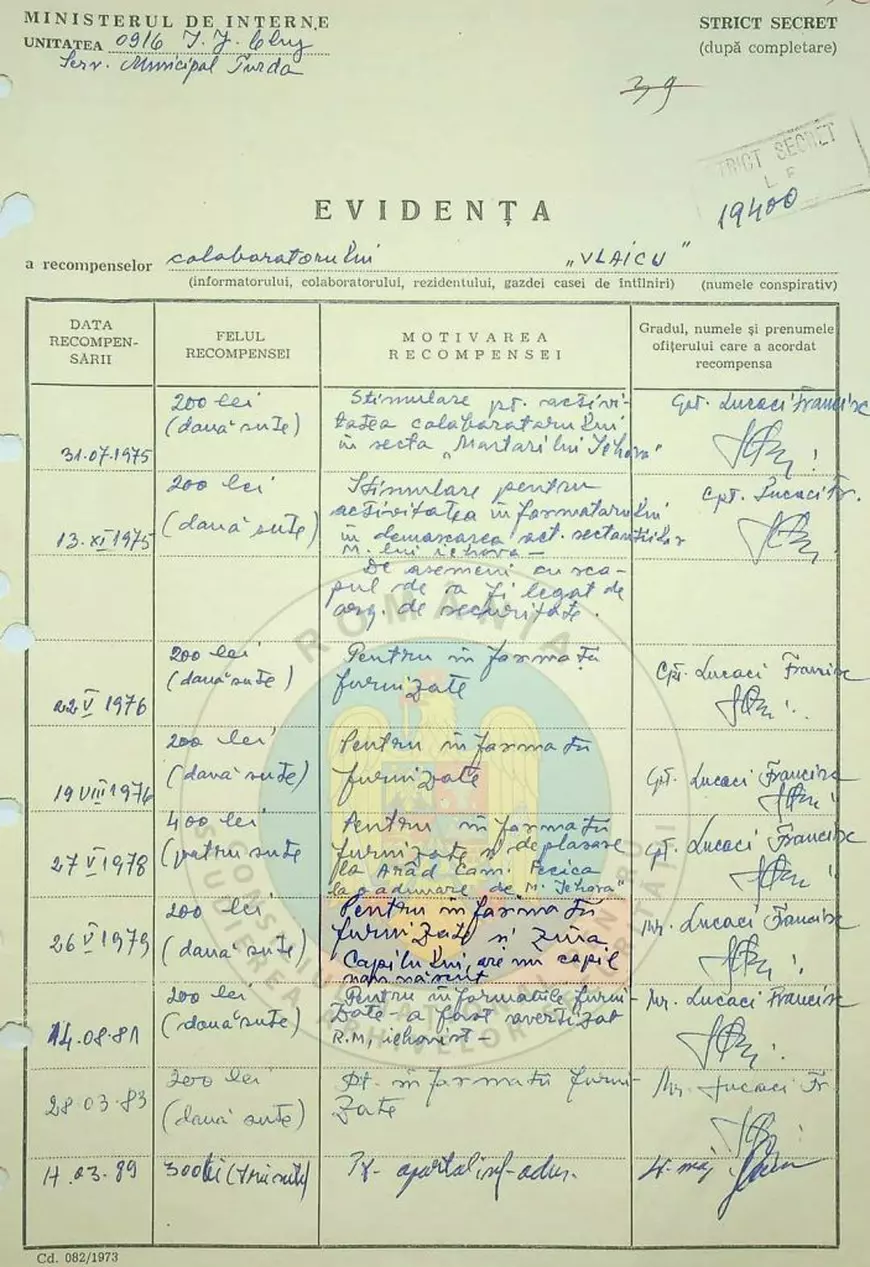 MINISTERUL DE INTERNE
UNITATEA 0916 I.J. Cluj
Serv. Municipal Turda
STRICT SECRET
(după completare)
39
STRICT SECRET
19400
EVIDENȚA
a recompenselor colaboratorului „VLAICU”
(informatorului, colaboratorului, rezidentului, gazdei casei de întîlniri) (numele conspirativ)
DATA
RECOMPEN-
SĂRII
FELUL
RECOMPENSEI
MOTIVAREA
RECOMPENSEI
Gradul, numele și prenumele
ofițerului care a acordat
recompensa
31.07.1975
200 lei
(două sute)
Stimulare pt. activi-
tatea colaboratorului
în secta „Martorii lui Iehova”
Cpt. Lucaci Francisc
13.XI 1975
200 lei
(două sute)
Stimulare pentru
activitatea informatorului
în demascarea act. sectanților
M. lui iehova –
De asemeni cu sco-
pul de a fi legat de
org. de securitate.
Cpt. Lucaci Fr.
22 V 1976
200 lei
(două sute)
Pentru informații
furnizate
Cpt. Lucaci Francisc
19 VIII 1976
200 lei
(două sute)
Pentru informații
furnizate
Cpt. Lucaci Francisc
27 V 1978
400 lei
(patru sute
Pentru informații
furnizate și deplasare
la Arad Com. Pecica
la o adunare de M. Iehova”
Cpt. Lucaci Francisc
26 V 1979
200 lei
(două sute)
Pentru informații
furnizate și ziua
Copilului, are un copil
nou născut
Mr. Lucaci Francisc
14.08.81
200 lei
(două sute)
Pentru informațiile furni-
zate – a fost avertizat
R.M, iehovist –
Mr. Lucaci Francisc
28 03 83
200 lei
(două sute)
Pt. informații furni-
zate
Mr. Lucaci Fr
17.03.89
300 lei (trei sute)
Pt. aportul inf-adus.
Lt. maj.
ROMÂNIA
CONSILIUL NAȚIONAL PENTRU
STUDIEREA ARHIVELOR SECURITĂȚII
Cd. 082/1973